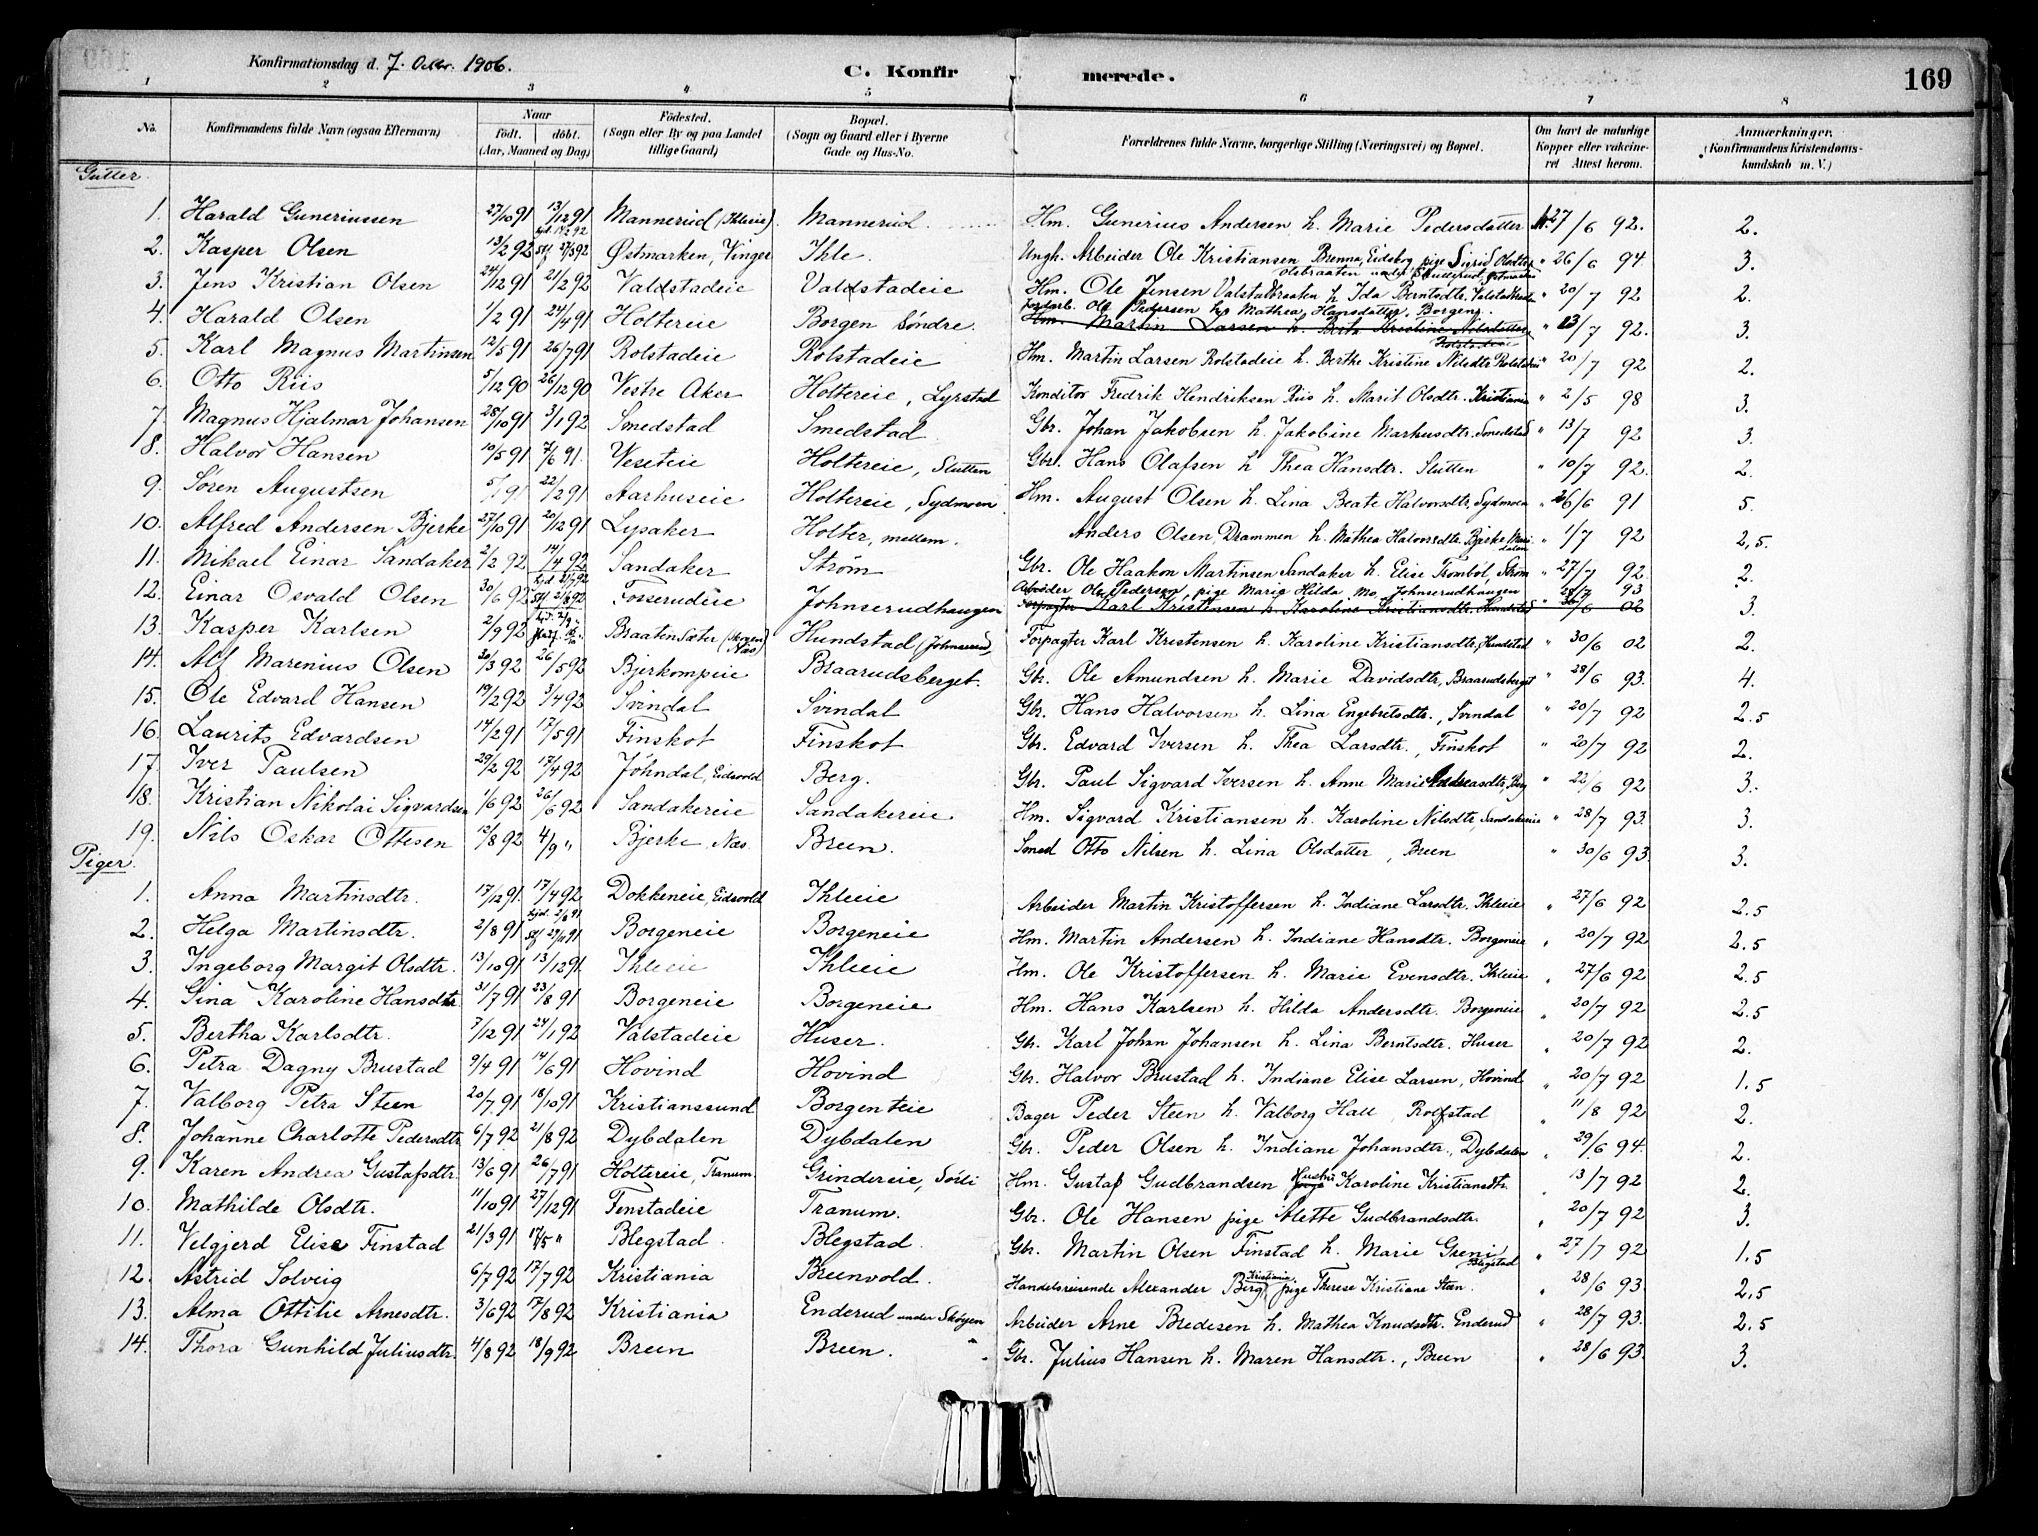 Konfirmationsdag d. 7. Octbr. 1906. C. Konfirmerede. 169
1 2 3 4 5 6 7 8
No. Konfirmandens fulde Navn (ogsaa Efternavn) Naar født. døbt. (Aar, Maaned og Dag) Fødested. (Sogn eller By og paa Landet tillige Gaard) Bopæl. (Sogn og Gaard eller i Byerne Gade og Hus-No. Forældrenes fulde Navne, borgerlige Stilling (Næringsvei) og Bopæl. Om havt de naturlige Kopper eller vakcineret Attest herom. Anmærkninger. (Konfirmandens Kristendomskundskab m. V.)
Gutter.
1. Harald Guneriussen 27/10 91 13/12 91 Mannerud (Ihleeie) Mannerud Hm. Gunerius Andersen h. Marie Pedersdatter 27/6 92. 2.
2. Kasper Olsen 13/2 92 hjd. 14/2 92 stf. 27/3 92 Østmarken, Vinger Ihle. Ungk. Arbeider Ole Kristiansen Brenna, Eidsbog pige Sigrid Olsdtr. Olsbraaten under Skullerud, Østmarken " 26/6 94. 3.
3. Jens Kristian Olsen 24/12 91 21/2 92 Valdstadeie Valdstadeie Hm. Ole Jensen Valstadbraaten h. Ida Berntsdtr. Valstadbraaten " 20/7 92 2.
4. Harald Olsen 1/2 91 24/4 91 Holtereie Borgen Søndre. Jordarb. Ole Pedersen h. Mathea Hansdatter, Borgeng. Hm. Martin Larsen h. Berte Kristine Nilsdatter Rolstadeie " 13/7 92. 3.
5. Karl Magnus Martinsen 12/5 91 26/7 91 Rolstadeie Rolstadeie Hm. Martin Larsen Rolstadeie h. Berthe Kristine Nilsdtr Rolstadeie " 20/7 92 2.
6. Otto Riis 5/12 90 26/12 90 Vestre Aker Holtereie, Lyrstad Konditor Fredrik Hendriksen Riis h. Marit Olsdtr. Kristiania " 2/5 98 3.
7. Magnus Hjalmar Johansen 28/10 91 3/1 92 Smedstad Smedstad Gbr. Johan Jakobsen h. Jakobine Marhusdtr. Smedstad " 13/7 92 3.
8. Halvor Hansen 10/5 91 7/6 91. Veseteie Holtereie, Slutten Gbr. Hans Olafsen h. Thea Hansdtr. Slutten " 10/7 92. 2.
9. Søren Augustsen 5/1 91 22/2 91 Aarhuseie Holtereie, Sydmoen Hm. August Olsen h. Lina Beate Halvorsdtr, Sydmoen 26/6 91 5.
10. Alfred Andersen Bjerke 27/10 91 20/12 91 Lysaker Holter, mellem. Anders Olsen, Drammen h. Mathea Halvorsdtr. Bjerke " 1/7 92 2,5.
11. Mikael Einar Sandaker 2/2 92 14/4 92 Sandaker Strøm Gbr. Ole Haakon Martinsen Sandaker h. Elise Trombøl, Strøm " 27/7 92 2.
12. Einar Osvald Olsen 30/6 92 hjd. 21/7 92 stf. 21/8 92 Fosserudeie Johnserudhaugen Arbeider Ole Pedersen, pige Marie Hilda Mo, Johnserudhaugen 28/7 93 Forpagter Karl Kristensen h. Karoline Kristiansdtr, Hundstad 30/6 06 3.
13. Kasper Karlsen 2/9 92 Braaten Sæter (Næs) Hundstad (Johnserud) Forpagter Karl Kristensen h. Karoline Kristiansdtr, Hundstad " 30/6 02 2.
14. Alf Marenius Olsen 30/3 92 26/5 92 Bjerkompeie Braarudsberget. Gbr. Ole Amundsen h. Marie Davidsdtr, Braarudsberget " 28/6 93. 4.
15. Ole Edvard Hansen 19/2 92 3/4 92 Svindal Svindal Gbr. Hans Halvorsen h. Lina Engebretsdtr., Svindal " 20/7 92 2.5
16. Laurits Edvardsen 14/2 91 17/5 91 Finskot Finskot Gbr. Edvard Iversen h. Thea Larsdtr., Finskot " 20/7 92 2.
17. Iver Paulsen 29/2 92 17/4 92 Johndal, Eidsvold Berg. Gbr. Paul Sigvard Iversen h. Anne Marie Andreasdtr, Berg " 22/6 92 3.
18. Kristian Nikolai Sigvardsen 1/6 92 26/6 92 Sandakereie Sandakereie Hm. Sigvard Kristiansen h. Karoline Nilsdtr, Sandakereie " 28/7 93. 3.
19. Nils Oskar Ottesen 12/8 92 4/9 " Bjerke, Næs. Breen. Smed Otto Nilsen h. Lina Olsdatter, Breen " 30/6 93. 3.
Piger.
1. Anna Martinsdtr. 17/12 91. 17/4 92 Dokkeneie, Eidsvold Ihleeie Arbeider Martin Kristoffersen h. Indiane Larsdtr. Ihleeie " 27/6 92 2.5
2. Helga Martinsdtr. 2/8 91 hjd. 2/8 91 stf. 29/11 91 Borgeneie Borgeneie Hm. Martin Andersen h. Indiane Hansdtr. Borgeneie " 20/7 92. 2.5
3. Ingeborg Margit Olsdtr. 13/10 91 13/12 91. Ihleeie Ihleeie Hm. Ole Kristoffersen h. Marie Evensdtr. Ihleeie " 27/6 92 2.5
4. Gina Karoline Hansdtr 31/7 91 23/8 91 Borgeneie Borgeneie Hm. Hans Karlsen h. Hilda Andersdtr. Borgeneie " 20/7 92 2.5
5. Bertha Karlsdtr. 7/12 91 24/1 92 Valstadeie Huser. Gbr. Karl Johan Johansen h. Lina Berntsdtr. Huser " 20/7 92 2.
6. Petra Dagny Brustad 9/4 91 14/6 91 Hovind Hovind Gbr. Halvor Brustad h. Indiane Elise Larsen, Hovind " 20/7 92 1.5
7. Valborg Petra Steen 20/7 91 18/10 91 Kristianssund Borgenteie Bager Peder Steen h. Valborg Hall, Rolfstad " 11/8 92 2.
8. Johanne Charlotte Pedersdtr 6/7 92 21/8 92 Dybdalen Dybdalen Gbr. Peder Olsen h. Indiane Johansdtr., Dybdalen " 29/6 94. 2.
9. Karen Andrea Gustafsdtr. 13/6 91 26/7 91 Holtereie, Tranum. Grindereie, Sørli Hm. Gustaf Gudbrandsen Hustru Karoline Kristiansdtr. " 13/7 92 2.
10. Mathilde Olsdtr. 11/10 91 27/12 91 Fenstadeie Tranum. Gbr. Ole Hansen pige Alette Gudbrandsdtr. " 20/7 92 3.
11. Velgjerd Elise Finstad 21/3 91 17/5 " Blegstad. Blegstad. Gbr. Martin Olsen Finstad h. Marie Greni Blegstad " 27/7 92 1.5
12. Astrid Solveig 6/7 92 17/7 92 Kristiania Breenvold. Handelsreisende Alexander Berg, Kristiania. pige Therese Kristiane Steen. " 28/6 93. 2,5
13. Alma Ottilie Arnesdtr. 3/6 92 17/8 92 Kristiania Enderud under Skøyen Arbeider Arne Bredesen h. Mathea Knudsdtr. Enderud " 28/7 93. 2.5
14. Thora Gunhild Juliusdtr. 4/8 92 18/9 92 Breen Breen. Gbr. Julius Hansen h. Maren Hansdtr., Breen " 28/6 93. 3.